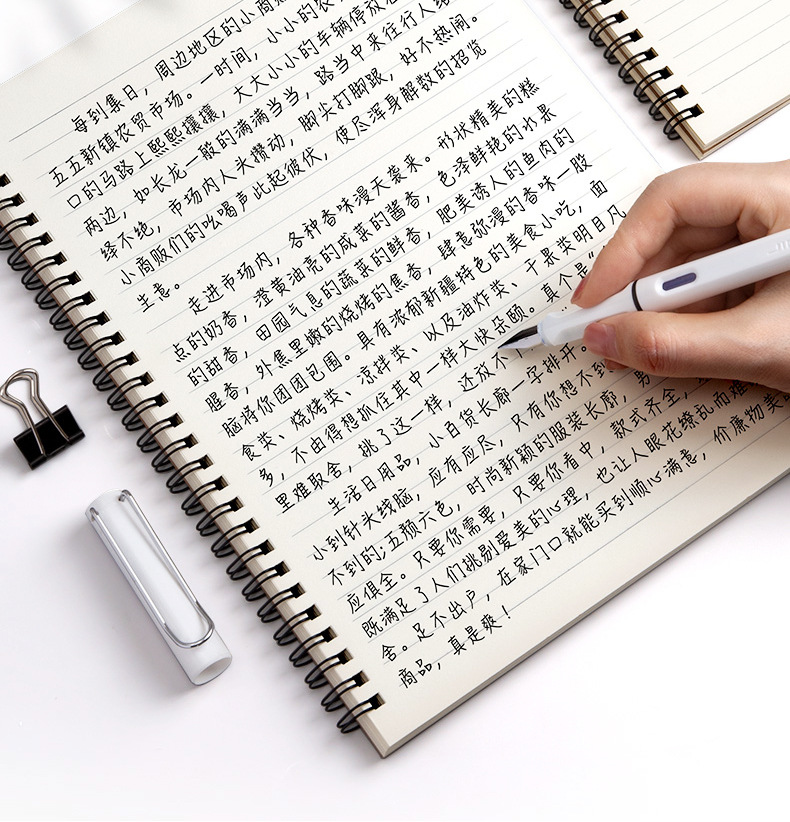 每到集日，周边地区的小商
五五新镇农贸市场。一时间，小小的农
口的马路上熙熙攘攘，大大小小的车辆停放在
两边，如长龙一般的满满当当，路当中来往行人络
绎不绝，市场内人头攒动，脚尖打脚跟，好不热闹。
小商贩们的吆喝声此起彼伏，使尽浑身解数的招览
生意。
走进市场内，各种香味漫天袭来。形状精美的糕
点的奶香，澄黄油亮的咸菜的酱香，色泽鲜艳的水果
的甜香，田园气息的蔬菜的鲜香，肥美诱人的鱼肉的
腥香，外焦里嫩的烧烤的焦香，肆意弥漫的香味一股
脑将你团团包围。具有浓郁新疆特色的美食小吃，面
食类、烧烤类、凉拌类、以及油炸类、干果类明目凡
多，不由得想抓住其中一样大快朵颐。真个是“
里难取舍，挑了这一样，还放不
生活日用品，小百货长廊一字排开。
小到针头线脑，应有应尽，只有你想不到
不到的;五颜六色，时尚新颖的服装长廊，男
应俱全。只要你需要，只要你看中，款式齐全，
既满足了人们挑剔爱美的心理，也让人眼花缭乱而难
舍。足不出户，在家门口就能买到顺心满意，价廉物美
商品，真是爽！